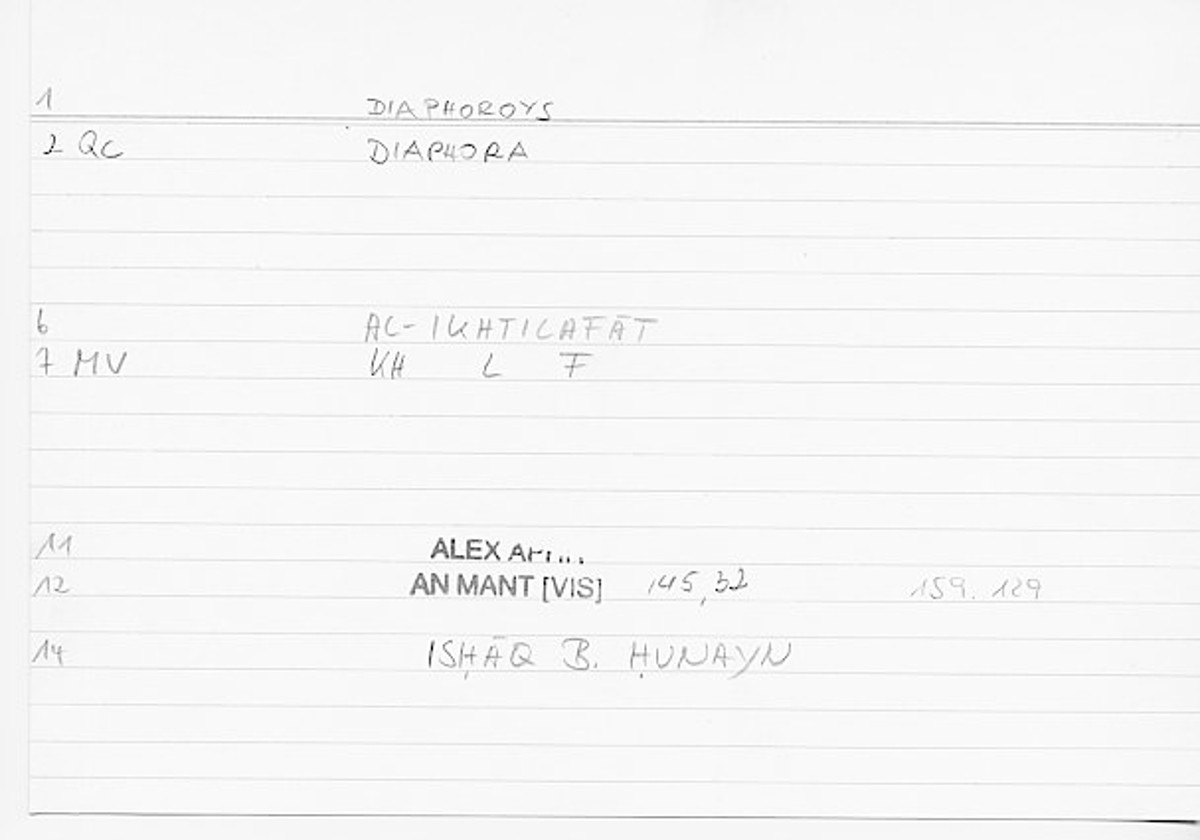 1 DIAPHOROYS
2 QC DIAPHORA
6 AL-IKHTILAFĀT
7 MV KH L F
11 ALEX
12 AN MANT [VIS] 145,32 159.129
14 ISḤĀQ B. ḤUNAYN